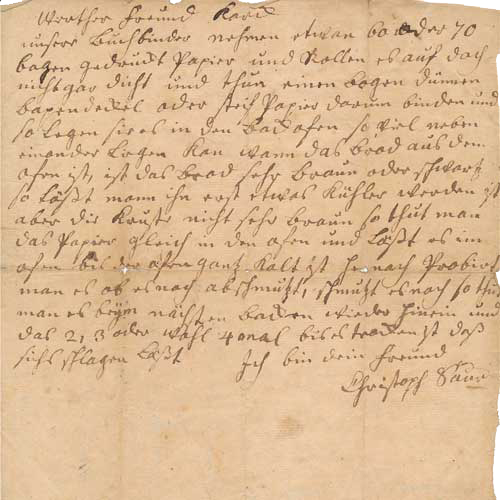 Werther Freund Kardt
unsere Buchbinder nehmen etwan 60 oder 70
bogen gedruckt Papier und Rollen es auf doch
nicht gar dicht und thun einen bogen dünnen
bapendeckel oder steif Papier darum binden und
so legen sie es in den backofen so viel neben
einander liegen kan wann das brod aus dem
ofen ist, ist das brod sehr braun oder schwartz
so läßt mann ihn erst etwas kühler werden ist
aber die Kruste nicht sehr braun so thut man
das Papier gleich in den ofen und läßt es im
ofen bis der ofen gantz kalt ist hernach Probirt
man es ob es noch abschmutzt, schmutzt es noch so thut
man es beym nächsten backen wieder hinein und
das 2, 3 oder wohl 4 mal bis es trocken ist daß
sichs schlagen läßt Ich bin dein freund
Christoph Saur